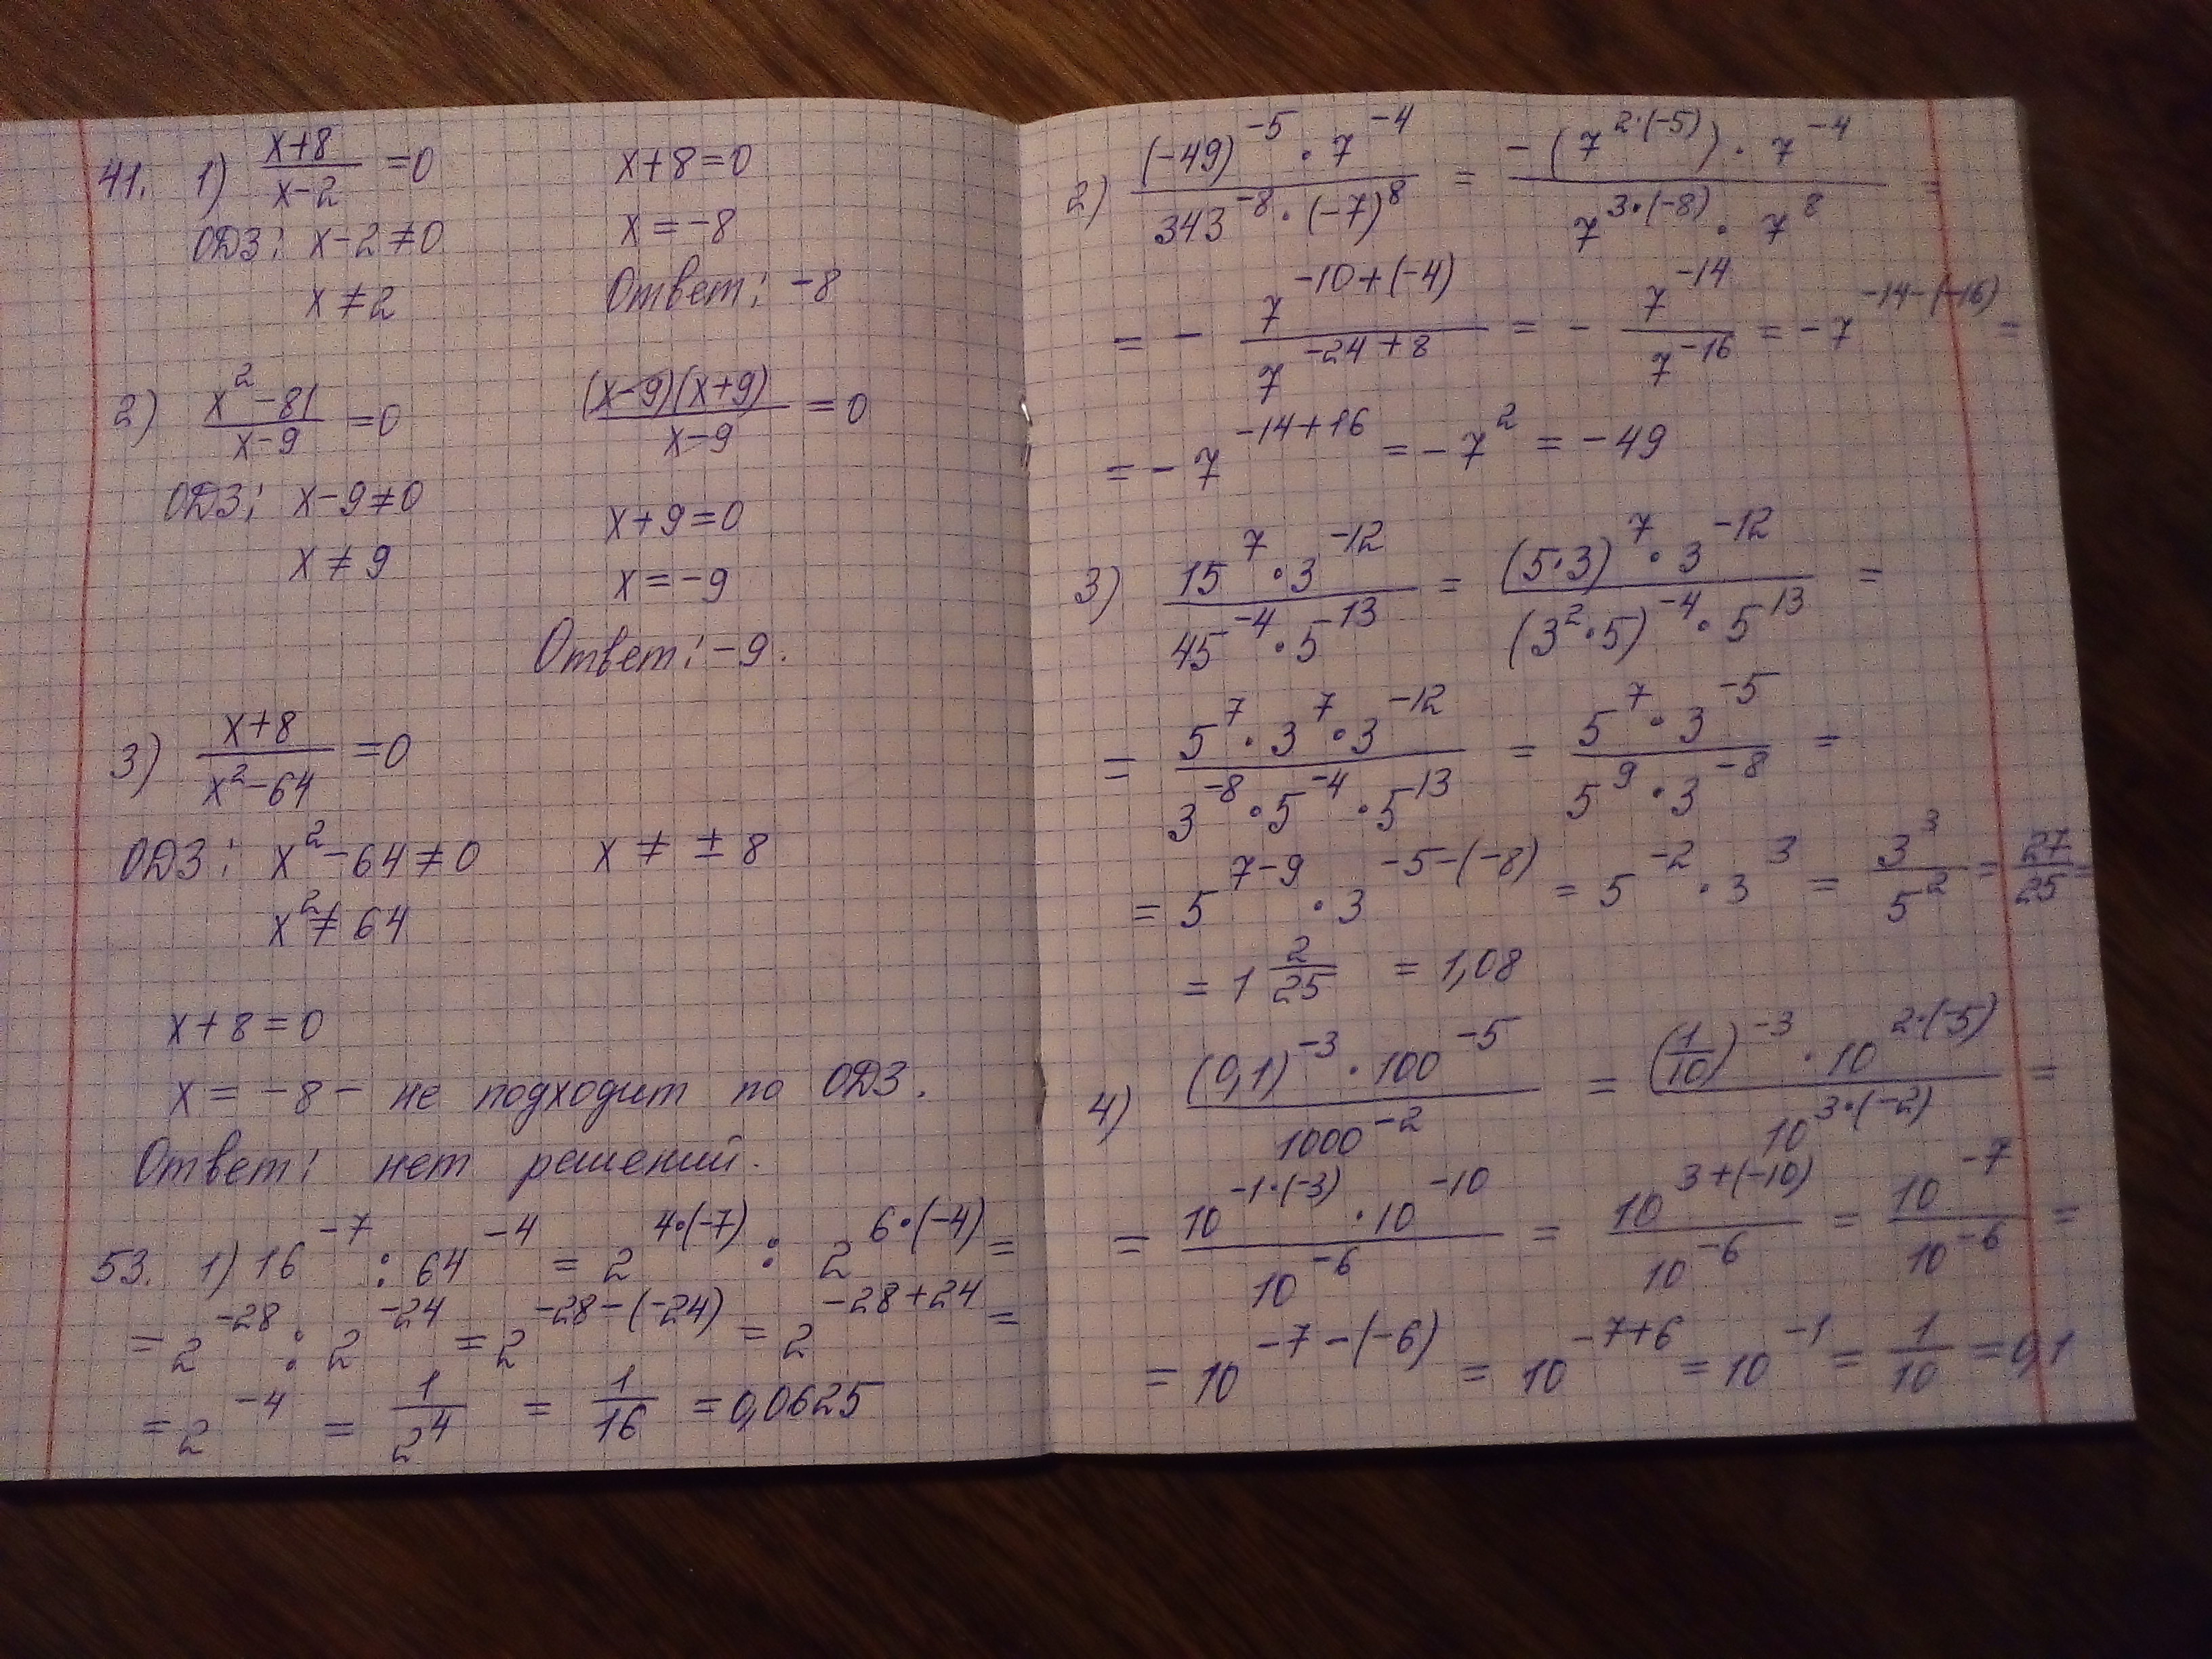 41. 1) (x+8)/(x-2) =0 x+8=0
ОДЗ: x-2≠0 x=-8
x≠2 Ответ: -8
2) (x²-81)/(x-9) =0 ((x-9)(x+9))/(x-9) =0
ОДЗ: x-9≠0 x+9=0
x≠9 x=-9
Ответ: -9.
3) (x+8)/(x²-64) =0
ОДЗ: x²-64≠0 x≠±8
x²≠64
x+8=0
x=-8 - не подходит по ОДЗ.
Ответ: нет решений.
53. 1) 16⁻⁷ : 64⁻⁴ = 2^(4·(-7)) : 2^(6·(-4)) =
= 2⁻²⁸ : 2⁻²⁴ = 2^(-28-(-24)) = 2^(-28+24) =
= 2⁻⁴ = 1/2⁴ = 1/16 = 0,0625
2) ((-49)⁻⁵ · 7⁻⁴)/(343⁻⁸ · (-7)⁸) = (-(7^(2·(-5))) · 7⁻⁴)/(7^(3·(-8)) · 7⁸) =
= - 7^(-10+(-4))/7^(-24+8) = - 7⁻¹⁴/7⁻¹⁶ = -7^(-14-(-16)) =
= -7^(-14+16) = -7² = -49
3) (15⁷ · 3⁻¹²)/(45⁻⁴ · 5¹³) = ((5·3)⁷ · 3⁻¹²)/((3²·5)⁻⁴ · 5¹³) =
= (5⁷ · 3⁷ · 3⁻¹²)/(3⁻⁸ · 5⁻⁴ · 5¹³) = (5⁷ · 3⁻⁵)/(5⁹ · 3⁻⁸) =
= 5^(7-9) · 3^(-5-(-8)) = 5⁻² · 3³ = 3³/5² = 27/25 =
= 1 2/25 = 1,08
4) ((0,1)⁻³ · 100⁻⁵)/1000⁻² = ((1/10)⁻³ · 10^(2·(-5)))/10^(3·(-2)) =
= (10^(-1·(-3)) · 10⁻¹⁰)/10⁻⁶ = 10^(3+(-10))/10⁻⁶ = 10⁻⁷/10⁻⁶ =
= 10^(-7-(-6)) = 10^(-7+6) = 10⁻¹ = 1/10 = 0,1